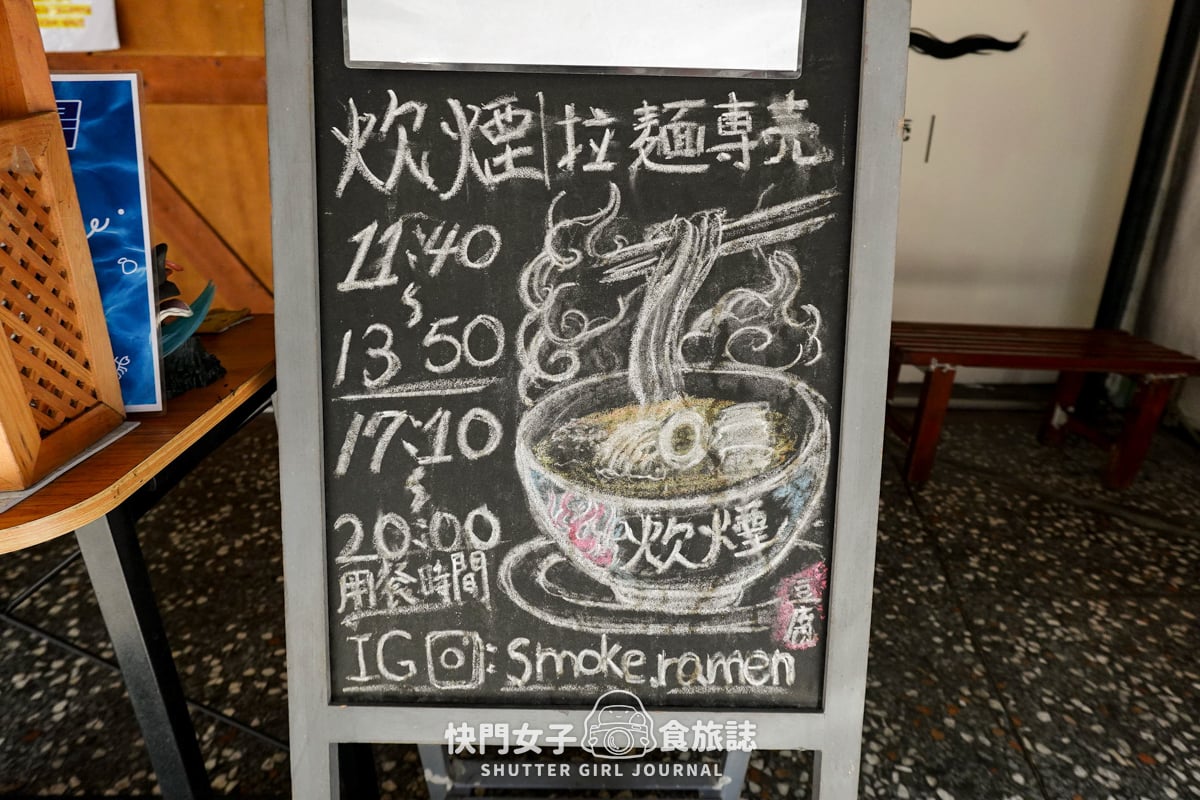 炊煙|拉麺專売
11:40
~
13 50
17:10
~
20:00
用餐時間
炊煙
豆腐
IG : smoke.ramen
快門女子 食旅誌
SHUTTER GIRL JOURNAL